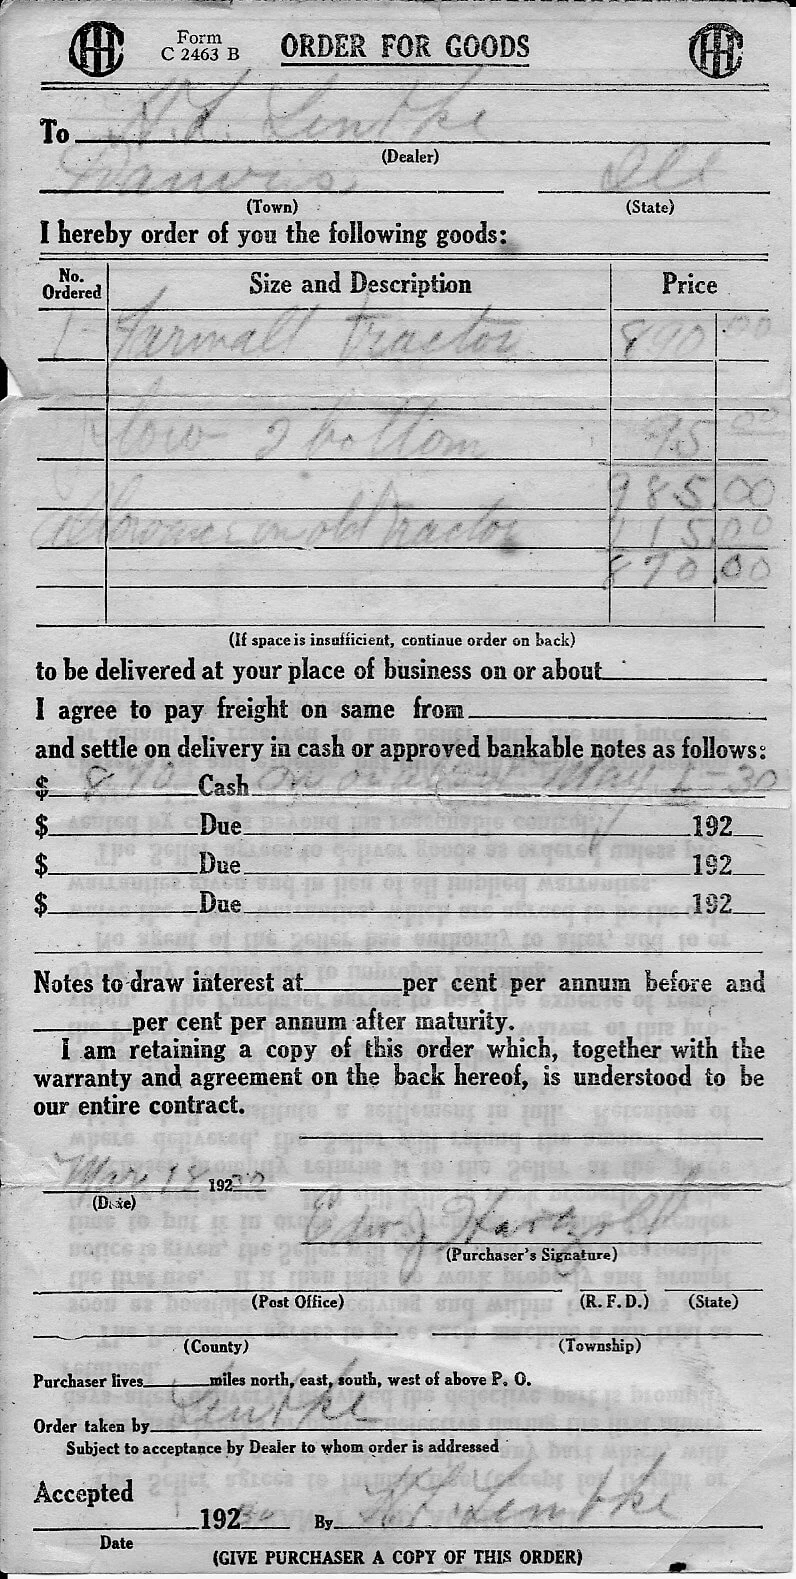 IHC Form ORDER FOR GOODS IHC
C 2463 B
To H. L. Lentke
(Dealer)
Danvers Ill
(Town) (State)
I hereby order of you the following goods:
No. Ordered Size and Description Price
1 Farmall Tractor 890.00
Plow 2 bottom 95.00
985.00
Allowance on old Tractor 115.00
870.00
(If space is insufficient, continue order on back)
to be delivered at your place of business on or about
I agree to pay freight on same from
and settle on delivery in cash or approved bankable notes as follows:
$ 870 Cash on or about May 1-30
$ Due 192
$ Due 192
$ Due 192
Notes to draw interest at per cent per annum before and
per cent per annum after maturity.
I am retaining a copy of this order which, together with the
warranty and agreement on the back hereof, is understood to be
our entire contract.
Mar 18 1930
(Date)
(Purchaser's Signature)
(Post Office) (R. F. D.) (State)
(County) (Township)
Purchaser lives miles north, east, south, west of above P. O.
Order taken by Lentke
Subject to acceptance by Dealer to whom order is addressed
Accepted
192 By H L Lentke
Date
(GIVE PURCHASER A COPY OF THIS ORDER)